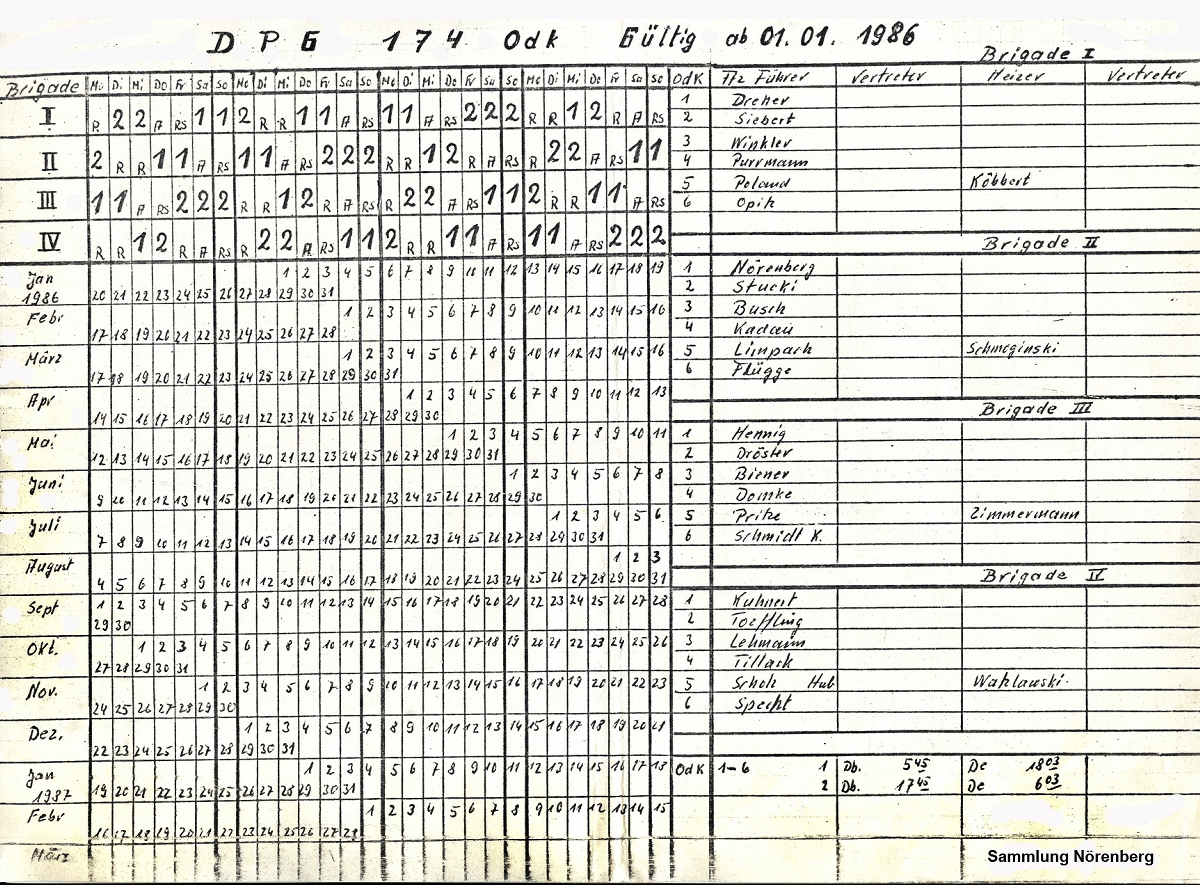 DPG 174 Odk Gültig ab 01.01. 1986
Brigade Mo Di Mi Do Fr Sa So Mo Di Mi Do Fr Sa So Mo Di Mi Do Fr Sa So Mo Di Mi Do Fr Sa So
I R 2 2 A RS 1 1 2 R R 1 1 A RS 1 1 A RS 2 2 2 R R 1 2 R A RS
II 2 R R 1 1 A RS 1 1 A RS 2 2 2 R R 1 2 R A RS R 2 2 A RS 1 1
III 1 1 A RS 2 2 2 R R 1 2 R A RS R 2 2 A RS 1 1 2 R R 1 1 A RS
IV R R 1 2 R A RS R 2 2 A RS 1 1 2 R R 1 1 A RS 1 1 A RS 2 2 2
Jan 1 2 3 4 5 6 7 8 9 10 11 12 13 14 15 16 17 18 19
1986 20 21 22 23 24 25 26 27 28 29 30 31
Febr 1 2 3 4 5 6 7 8 9 10 11 12 13 14 15 16
17 18 19 20 21 22 23 24 25 26 27 28
März 1 2 3 4 5 6 7 8 9 10 11 12 13 14 15 16
17 18 19 20 21 22 23 24 25 26 27 28 29 30 31
Apr 1 2 3 4 5 6 7 8 9 10 11 12 13
14 15 16 17 18 19 20 21 22 23 24 25 26 27 28 29 30
Mai 1 2 3 4 5 6 7 8 9 10 11
12 13 14 15 16 17 18 19 20 21 22 23 24 25 26 27 28 29 30 31
Juni 1 2 3 4 5 6 7 8
9 10 11 12 13 14 15 16 17 18 19 20 21 22 23 24 25 26 27 28 29 30
Juli 1 2 3 4 5 6
7 8 9 10 11 12 13 14 15 16 17 18 19 20 21 22 23 24 25 26 27 28 29 30 31
August 1 2 3
4 5 6 7 8 9 10 11 12 13 14 15 16 17 18 19 20 21 22 23 24 25 26 27 28 29 30 31
Sept 1 2 3 4 5 6 7 8 9 10 11 12 13 14 15 16 17 18 19 20 21 22 23 24 25 26 27 28
29 30
Okt. 1 2 3 4 5 6 7 8 9 10 11 12 13 14 15 16 17 18 19 20 21 22 23 24 25 26
27 28 29 30 31
Nov. 1 2 3 4 5 6 7 8 9 10 11 12 13 14 15 16 17 18 19 20 21 22 23
24 25 26 27 28 29 30
Dez. 1 2 3 4 5 6 7 8 9 10 11 12 13 14 15 16 17 18 19 20 21
22 23 24 25 26 27 28 29 30 31
Jan 1 2 3 4 5 6 7 8 9 10 11 12 13 14 15 16 17 18
1987 19 20 21 22 23 24 25 26 27 28 29 30 31
Febr 1 2 3 4 5 6 7 8 9 10 11 12 13 14 15
16 17 18 19 20 21 22 23 24 25 26 27 28
März
Brigade I
OdK Tfz Führer Vertreter Heizer Vertreter
1 Dreher
2 Siebert
3 Winkler
4 Purrmann
5 Poland Köbbert
6 Opitz
Brigade II
1 Nörenberg
2 Stucki
3 Busch
4 Kadau
5 Limpach Schmeginski
6 Flügge
Brigade III
1 Hennig
2 Dröster
3 Biener
4 Domke
5 Pritze Zimmermann
6 Schmidt K.
Brigade IV
1 Kuhnert
2 Toeffling
3 Lehmann
4 Tillack
5 Scholz Hub Wahlawski
6 Specht
OdK 1-6 1 Db. 5 45 De 18 03
2 Db. 17 45 De 6 03
Sammlung Nörenberg